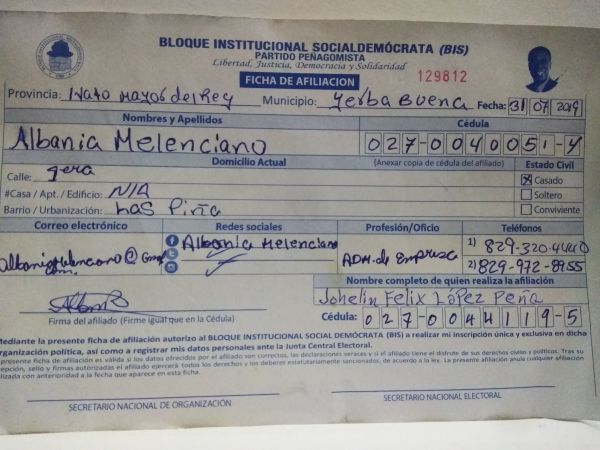 BLOQUE INSTITUCIONAL SOCIALDEMÓCRATA (BIS)
PARTIDO PEÑAGOMISTA
Libertad, Justicia, Democracia y Solidaridad
FICHA DE AFILIACION 129812
Provincia: Hato mayor del Rey Municipio: Yerba Buena Fecha: 31 07 2019
Nombres y Apellidos Cédula
Albania Melenciano 027-0040051-4
Domicilio Actual (Anexar copia de cédula del afiliado) Estado Civil
Calle: 9era Casado
#Casa / Apt. / Edificio: N/A Soltero
Barrio / Urbanización: Las Piña Conviviente
Correo electrónico Redes sociales Profesión/Oficio Teléfonos
albaniamelenciano@Gmail Albania Melenciano ADM. de Empresa 1) 829-320-4440
com. 2) 829-972-8955
Nombre completo de quien realiza la afiliación
Johelin Felix López Peña
Firma del afiliado (Firme igual que en la Cédula) Cédula: 027-0044119-5
Mediante la presente ficha de afiliación autorizo al BLOQUE INSTITUCIONAL SOCIAL DEMÓCRATA (BIS) a realizar mi inscripción única y exclusiva en dicha
organización política, así como a registrar mis datos personales ante la Junta Central Electoral.
presente ficha de afiliación es válida si los datos ofrecidos por el afiliado son correctos, las declaraciones veraces y si el afiliado tiene el disfrute de sus derechos civiles y políticos. Tras su
epción, sello y firmas autorizadas el afiliado ejercerá todos los derechos y los deberes estatutariamente sancionados, de acuerdo a la ley. La presente afiliación anula cualquier afiliación
alizada con anterioridad a la fecha que aparece en esta ficha.
SECRETARIO NACIONAL DE ORGANIZACIÓN SECRETARIO NACIONAL ELECTORAL